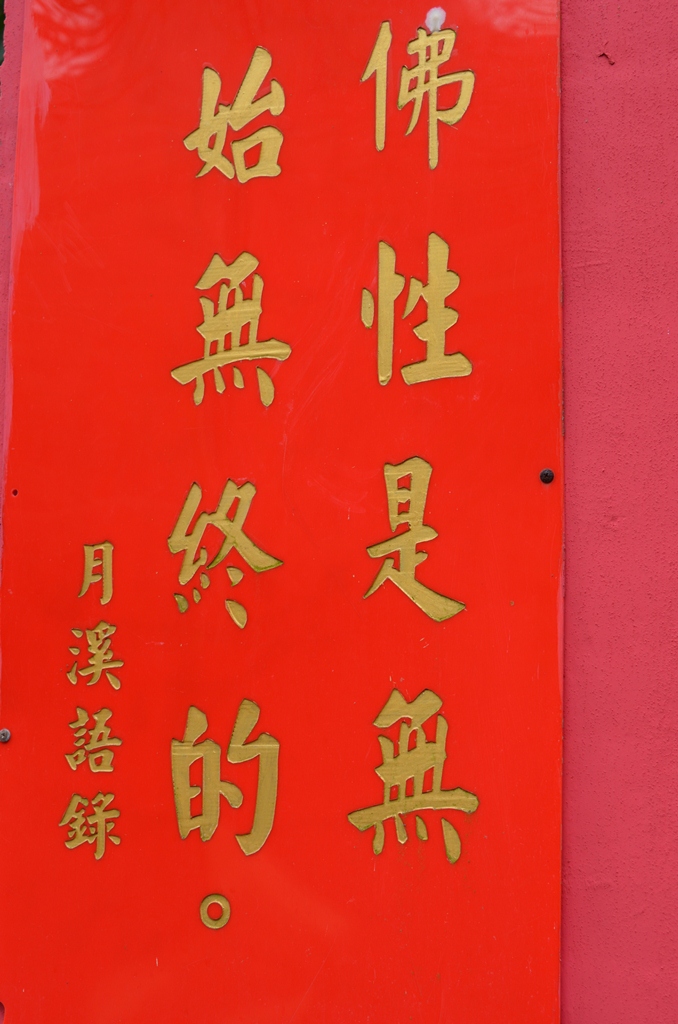 佛性是無
始無終的。
月溪語錄